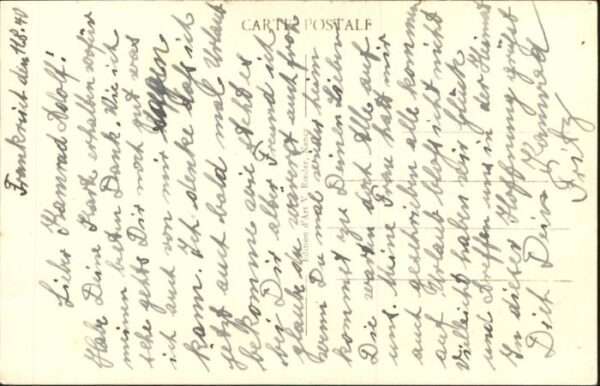 CARTE POSTALE
Frankreich den 11.8.40
Lieber Kamerad Adolf!
Hab Deine Karte erhalten wofür
meinen besten Dank. Wie ich
sehe gehts Dir noch gut was
ich auch von mir sagen
kann. Ich denke das ich
jetzt auch bald mal Urlaub
bekomme wie steht es
bei Dir alter Freund ich
glaube du wärest auch froh
wenn Du mal wieder heim
kommst zu Deinen Lieben
Die warten doch Alle auf
uns. Meine Frau hat mir
auch geschrieben alle kommen
auf Urlaub bloß ich nicht
Vielleicht haben wir Glück
und treffen uns in der Heimat
In dieser Hoffnung grüßt
Dich Dein Kamerad
Fritz